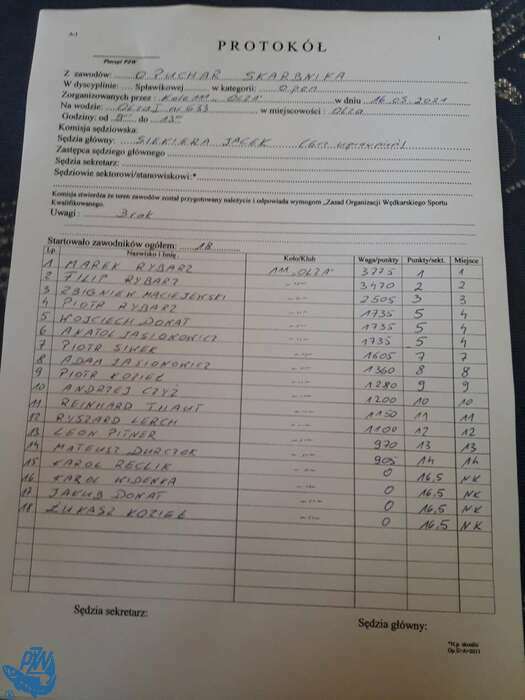 Pieczęć PZW
PROTOKÓŁ
Z zawodów: O PUCHAR SKARBNIKA
W dyscyplinie: Spławikowej w kategorii: Open
Zorganizowanych przez: Koło 111 "OLZA" w dniu 16.05.2021
Na wodzie: w miejscowości: OLZA
Godziny: od do
Komisja sędziowska:
Sędzia główny: SIEKIERA JACEK
Zastępca sędziego głównego
Sędzia sekretarz:
Sędziowie sektorowi/stanowiskowi:*
Komisja stwierdza że teren zawodów został przygotowany należycie i odpowiada wymogom „Zasad Organizacji Wędkarskiego Sportu
Kwalifikowanego.
Uwagi: Brak
Startowało zawodników ogółem: 18
Lp. Nazwisko i Imię Koło/Klub Waga/punkty Punkty/sekt. Miejsce
1 MAREK RYBARZ 111 "OLZA" 3775 1 1
2 FILIP RYBARZ 3470 2 2
3 ZBIGNIEW MACIEJEWSKI 2505 3 3
4 PIOTR RYBARZ 1735 5 4
5 WOJCIECH DONAT 1735 5 4
6 ANATOL JASIONOWICZ 1735 5 4
7 PIOTR SIWEK 1605 7 7
8 ADAM JASIONOWICZ 1360 8 8
9 PIOTR KOZIEŁ 1280 9 9
10 ANDRZEJ CZYŻ 1200 10 10
11 REINHARD 1150 11 11
12 RYSZARD LERCH 1100 12 12
13 LEON PITNER 970 13 13
14 MATEUSZ DURCZOK 905 14 14
15 KAROL REGLIK 0 16,5 NK
16 KAROL WIDENKA 0 16,5 NK
17 JAKUB DONAT 0 16,5 NK
18 ŁUKASZ KOZIEŁ 0 16,5 NK
Sędzia sekretarz: Sędzia główny:
PZW